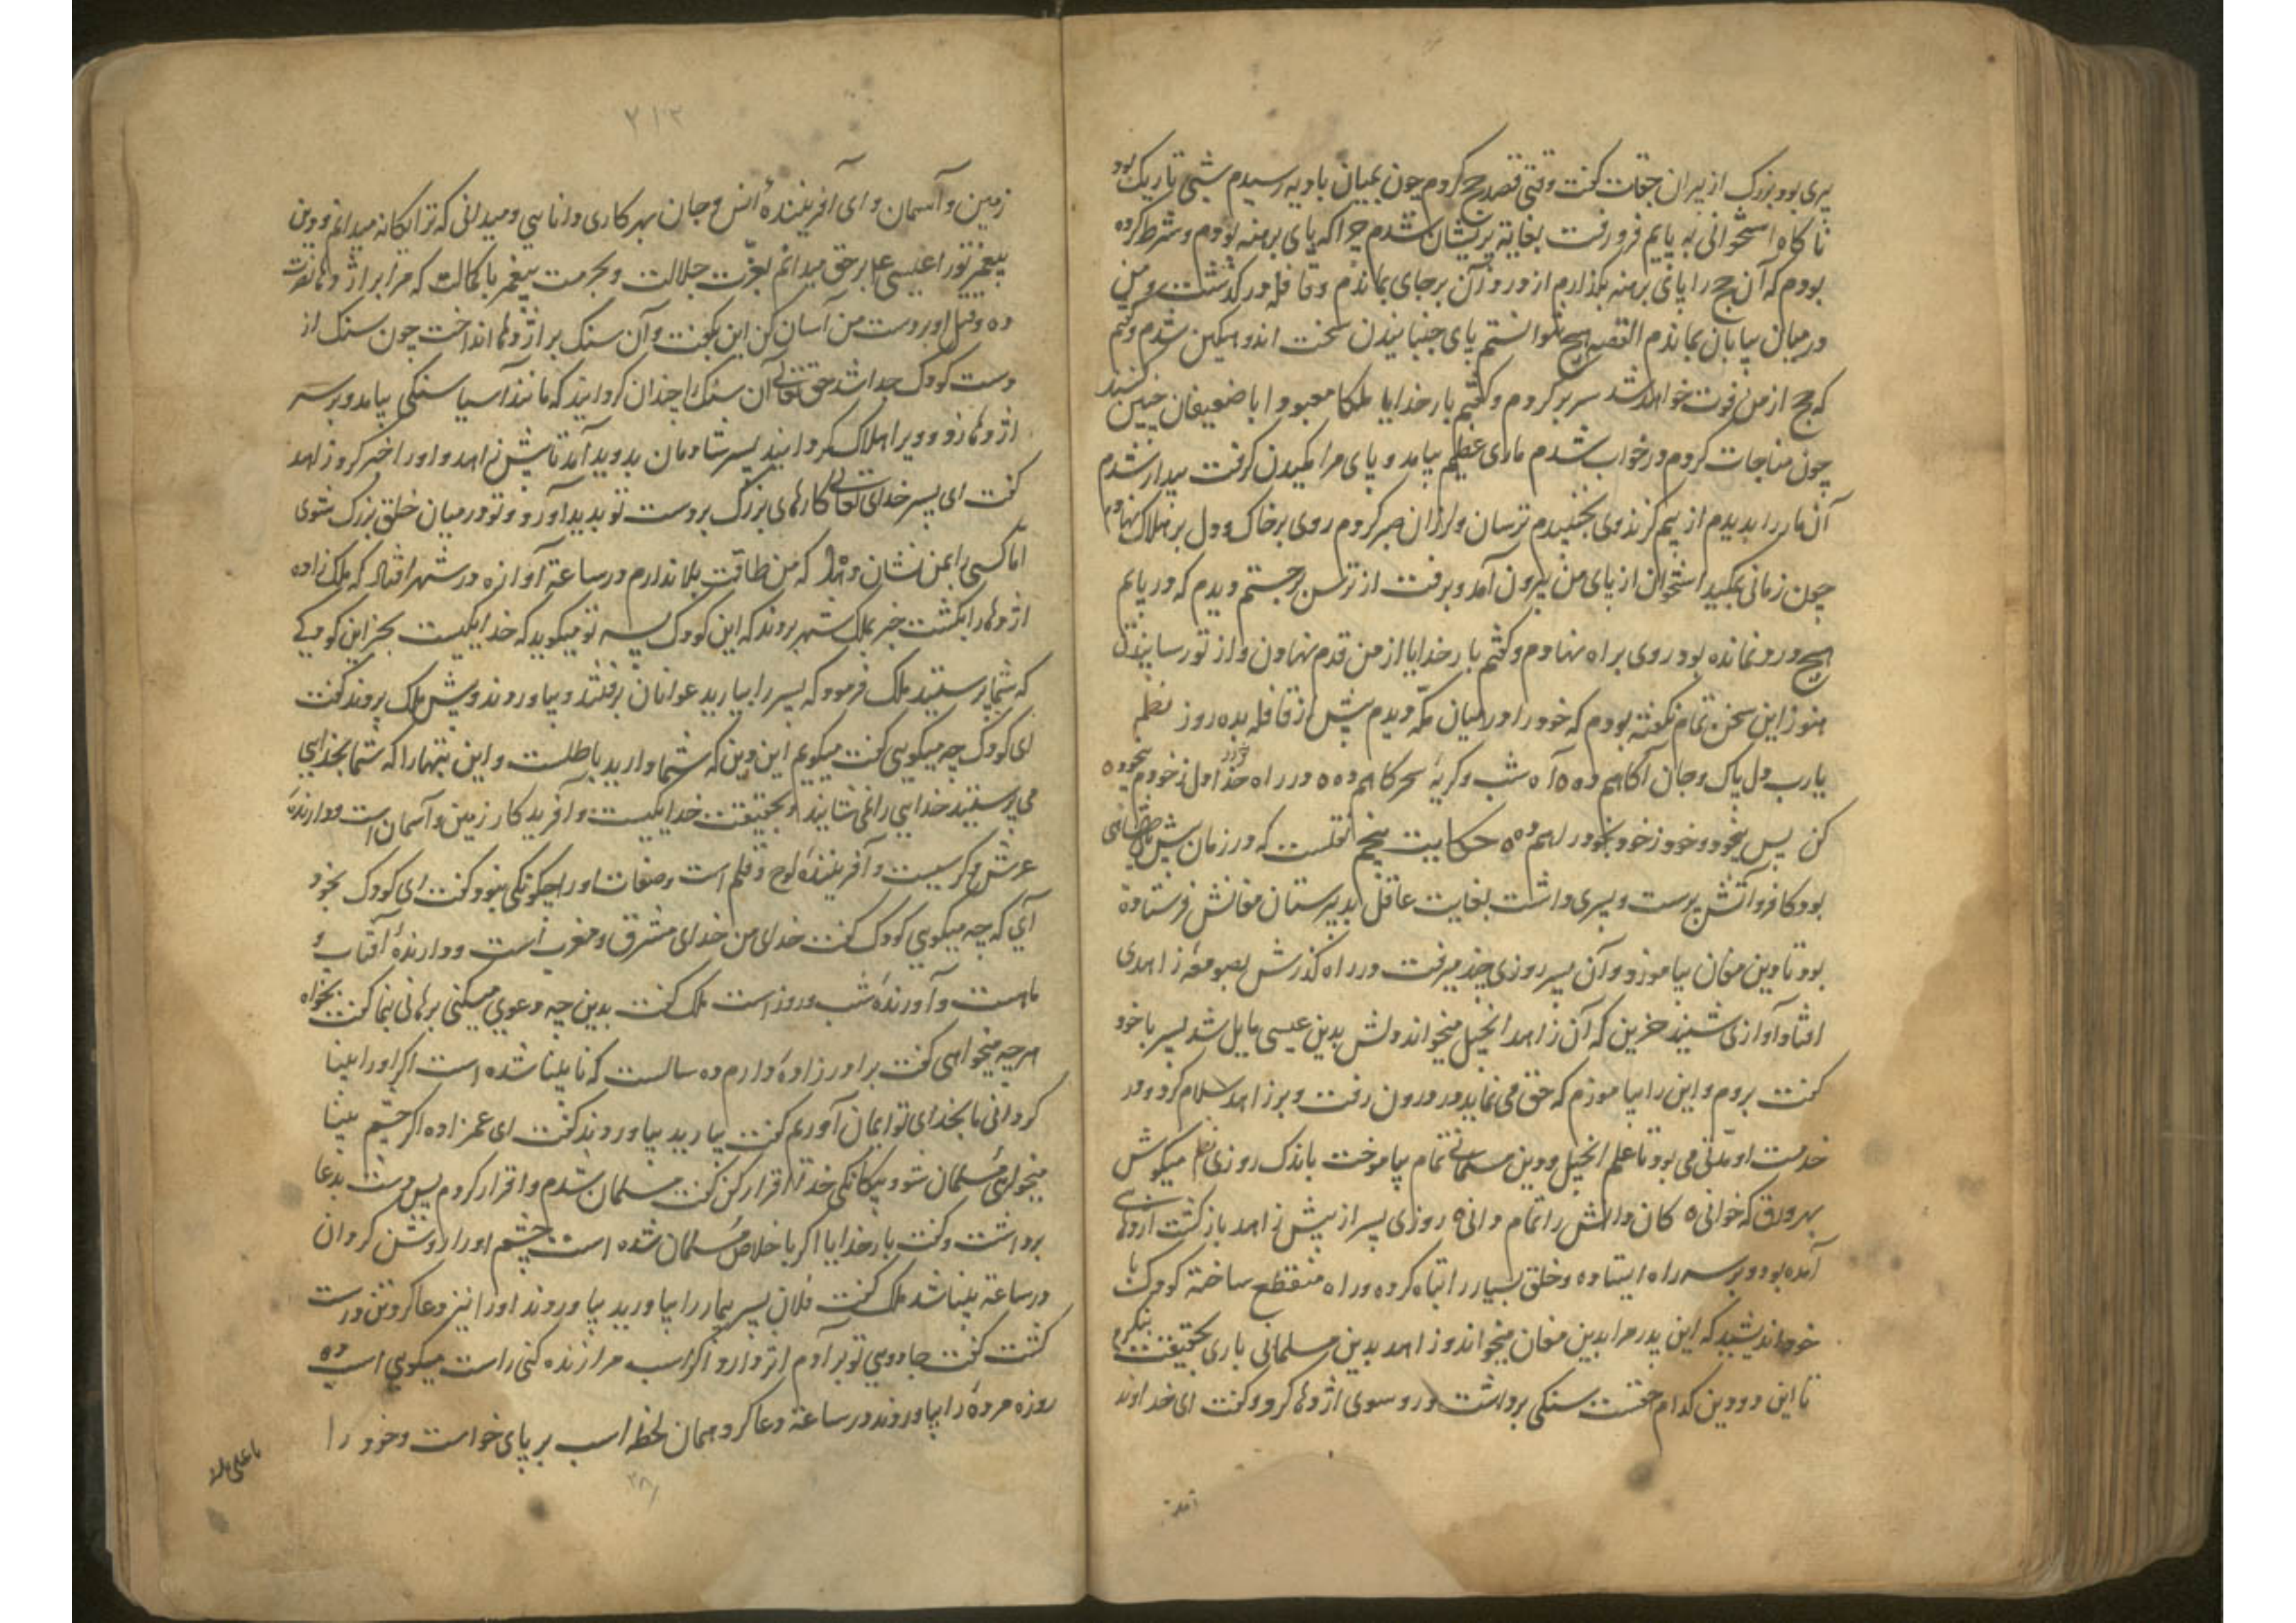 پیری بود بزرک از پیران جقات کفت وقتی قصد حج کردم چون بمیان بادیه رسیدم شبی تاریک بود
ناکاه استخوانی به پایم فرو رفت بغایه پریشان شدم چرا که پای برهنه بودم و شرط کرده
بودم که آن حج را پای برهنه بکذارم از درد آن برجای بماندم و قافله درکذشت و من
در میان بیابان بماندم القصه هیچ نتوانستم پای جنبانیدن سخت اندوهکین شدم و کفتم
که حج از من فوت خواهد شد سر بر کردم و کفتم بار خدایا ملکا معبودا با ضعیفان چنین کنند
چون مناجات کردم در خواب شدم ماری عظیم بیامد و پای مرا مکیدن کرفت بیدار شدم
آن مار را بدیدم از بیم کزند وی نجنبیدم ترسان و لرزان صبر کردم روی بر خاک و دل بر هلاک نهادم
چون زمانی بمکید استخوان از پای من بیرون آمد و برفت از ترس برجستم دیدم که در پایم
هیچ درد نمانده بود روی براه نهادم و کفتم بار خدایا از من قدم نهادن و از تو رسانیدن
هنوز این سخن تمام نکفته بودم که خود را در میان مکه دیدم پیش از قافله بده روز نظم
یارب دل پاک و جان آکاهم ده ه آه شب و کریهٔ سحرکاهم ده ه در راه خود اول ز خودم بیخود ه
کن پس بیخود و خود ز خود بخود راهم ده ه حکایت پنجم نقلست که در زمان پیش
بود کافر و آتش پرست و پسری داشت بغایت عاقل بدبیرستان مغانش فرستاده
بود تا دین مغان بیاموزد و آن پسر روزی چند میرفت در راه کذرش بصومعهٔ زاهدی
افتاد آوازی شنید حزین که آن زاهد انجیل میخواند دلش بدین عیسی مایل شد پسر با خود
کفت بروم و این را بیاموزم که حق می نماید در درون رفت و بر زاهد سلام کرد و در
خدمت او مدتی می بود تا علم انجیل و دین مسلمانی تمام بیاموخت باندک روزی نظم میکوش
بهر ورق که خوانی ه کان دانش را تمام دانی ه روزی پسر از پیش زاهد باز کشت اژدهای
آمده بود و بر سر راه ایستاده و خلق بسیار را تباه کرده و راه منقطع ساخته کودک با
خود اندیشید که این پدر مرا بدین مغان میخواند و زاهد بدین مسلمانی باری بحقیقت بنکرم
تا این دو دین کدام حقست سنکی برداشت و رو سوی اژدها کرد و کفت ای خداوند
۲۱۲
زمین و آسمان و ای آفرینندهٔ انس و جان بهر کاری دانایی و میدانی که ترا یکانه میدانم و دین
پیغمبر تو را عیسی ع بر حق میدانم بعزت جلالت و بحرمت پیغمبر با کمالت که مرا بر اژدها نصرت
ده و قتل او بر دست من آسان کن این بکفت و آن سنک بر اژدها انداخت چون سنک از
دست کودک جدا شد حق تعالی آن سنک را چندان کردانید که مانند آسیا سنکی بیامد و بر سر
اژدها زد و ویرا هلاک کردانید پسر شادمان بدوید آمد تا پیش زاهد و او را خبر کرد زاهد
کفت ای پسر خدای تعالی کارهای بزرک بر دست تو بدید آورد و تو در میان خلق بزرک شوی
اما کسی را بمن نشان مده که من طاقت بلا ندارم در ساعة آوازه در شهر افتاد که ملک زاده
اژدها را بکشت خبر بملک شهر بردند که این کودک پسر تو میکوید که خدا یکیست بجز این که
که شما پرستید ملک فرمود که پسر را بیارید عوانان برفتند و بیاوردند و پیش ملک بردند کفت
ای کودک چه میکویی کفت میکویم این دین که شما دارید باطلست و این بتهارا که شما بخدایی
می پرستید خدایی را نمی شایند و بحقیقت خدا یکیست و آفریدکار زمین و آسمان است و دارندهٔ
عرش و کرسیست و آفرینندهٔ لوح و قلم است و صفات او را چکونکی نبود کفت ای کودک بخود
آی که چه میکویی کودک کفت خدای من خدای مشرق و مغرب است و دارندهٔ آفتاب و
ماهست و آورندهٔ شب و روز است ملک کفت بدین چه دعوی میکنی برهانی بنما کفت بخواه
هرچه میخواهی کفت برادرزادهٔ دارم ده سالست که نابینا شده است اکر او را بینا
کردانی ما بخدای تو ایمان آوریم کفت بیارید بیاوردند کفت ای عمزاده اکر چشم بینا
میخواهی مسلمان شو و بیکانکی خدا اقرار کن کفت مسلمان شدم و اقرار کردم پس دست بدعا
برداشت و کفت بار خدایا اکر باخلاص مسلمان شده است چشم او را روشن کردان
در ساعة بینا شد ملک کفت فلان پسر بیمار را بیاورید بیاوردند او را نیز دعا کرد تن درست
کشت کفت جادویی تو بر آدم اثر دارد اکر اسب مرا زنده کنی راست میکویی اسب ده
روزه مرده را بیاوردند در ساعة دعا کرد همان لحظه اسب بر پای خواست و خود را